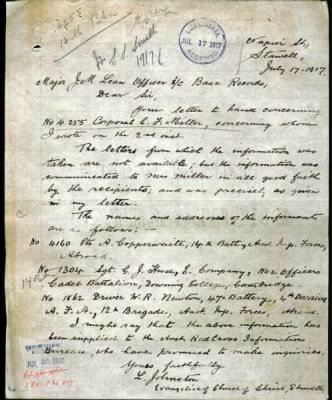 16th Battn
Fr. S.S. Smith
1917
JUL 17 1917
RECEIVED
Napier St,
Stawell,
July 17-1917.
Major J.M. Lean Officer i/c Base Records,
Dear Sir
Your letter to hand concerning
No 4255 Corporal C. F. Miller, concerning whom
I wrote on the 2nd inst.
The letters from which the information was
taken are not available; but the information was
communicated to Mrs Miller in all good faith
by the recipients; and was precisely, as given
in my letter.
The names and addresses of the informants
are as follows:-
No 4160 Pte A. Copperwaite, 14th Batty Aust. Imp. Forces,
Abroad.
No 1304 Sgt C. J. Huse, E. Company, No 2 Officers
Cadet Battalion, Downing College, Cambridge
No 1862 Driver W. R. Newton, 47th Battery, 4th Division
A. F. A., 12th Brigade, Aust. Imp. Forces, Abroad.
I might say that the above information has
been supplied to the Aust Red Cross Information
Bureau, who have promised to make inquiries.
Yours faithfully
L. Johnston
Evangelist of Church of Christ, Stawell
JUL 20 1917